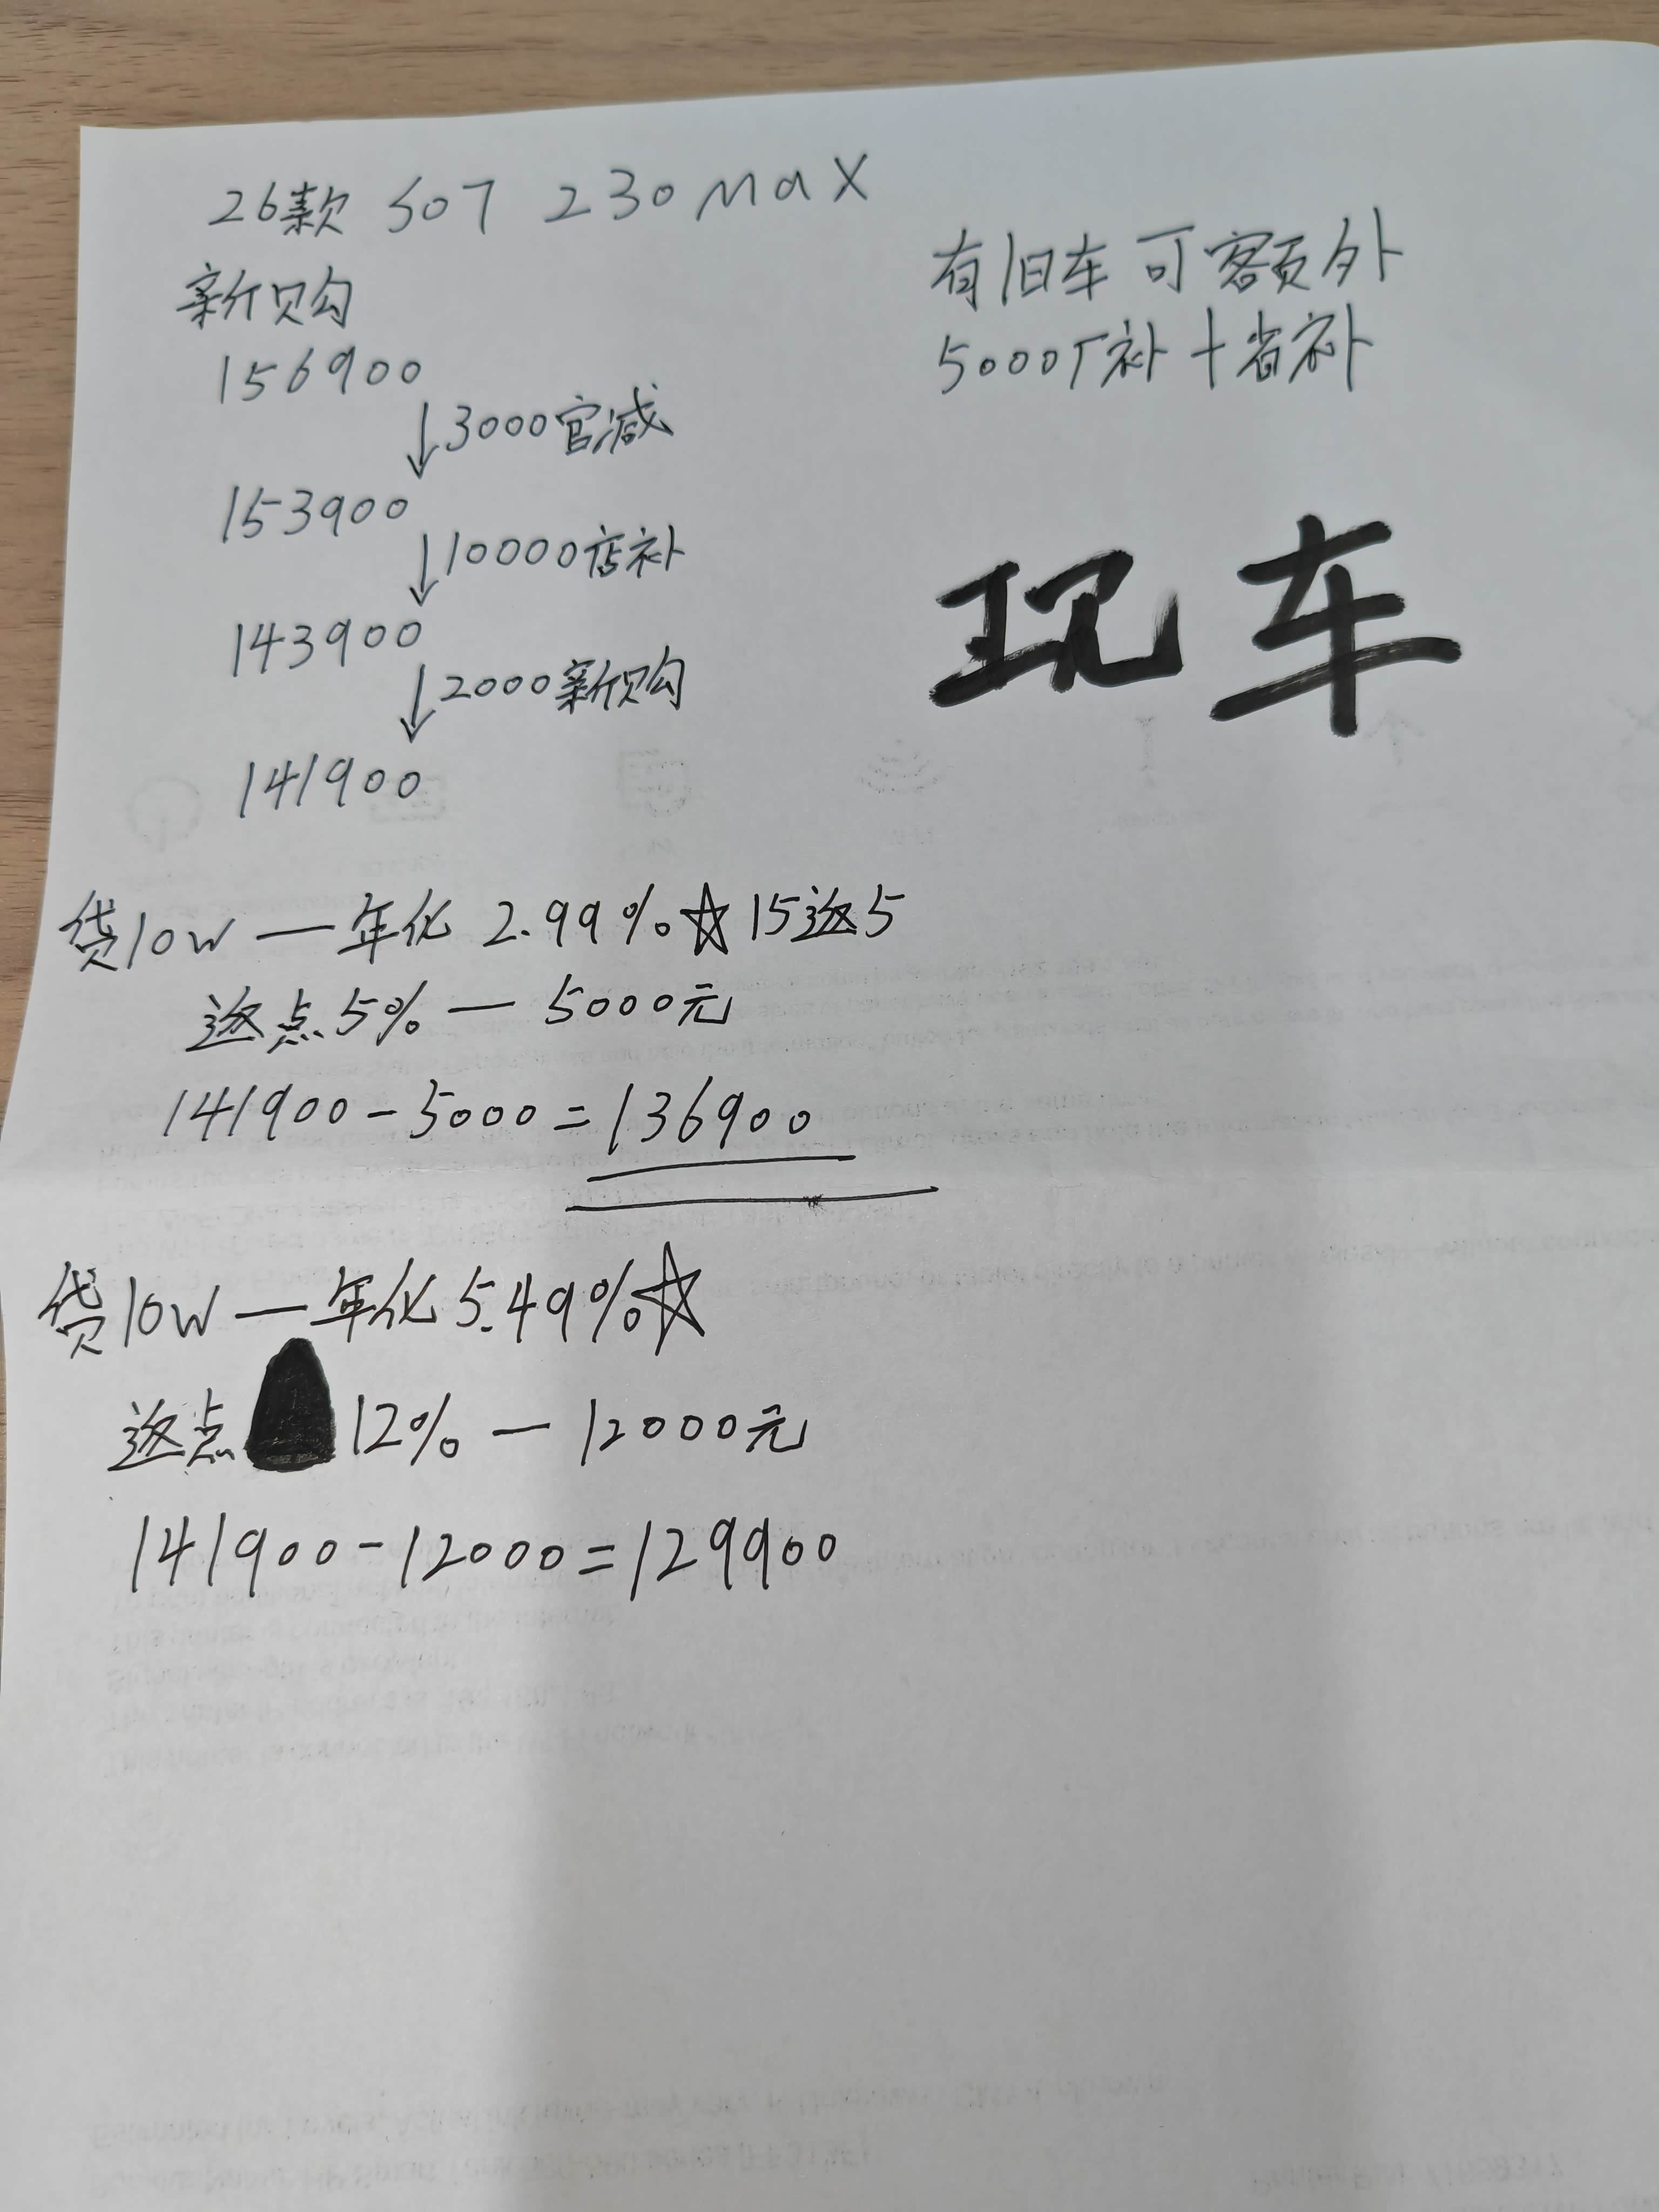 26款 S07 230MaX
新购
156900
↓3000官减
153900
↓10000店补
143900
↓2000新购
141900
有旧车可客额外
5000厂补+省补
现车
贷10W—年化 2.99%☆15返5
返点5%—5000元
141900-5000=136900
贷10W—年化5.49%☆
返点 12%—12000元
141900-12000=129900